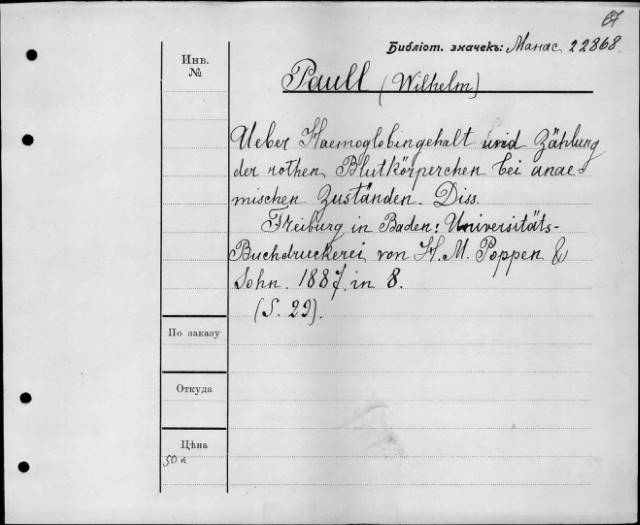 67
Библіот. значекъ: Манас 22868.
Инв.
№
Paull (Wilhelm)
Ueber Haemoglobingehalt und Zählung
der rothen Blutkörperchen bei anae-
mischen Zuständen. Diss.
Freiburg in Baden: Universitäts-
Buchdruckerei von H. M. Poppen &
Sohn. 1887. in 8.
(S. 29).
По заказу
Откуда
Цѣна
50